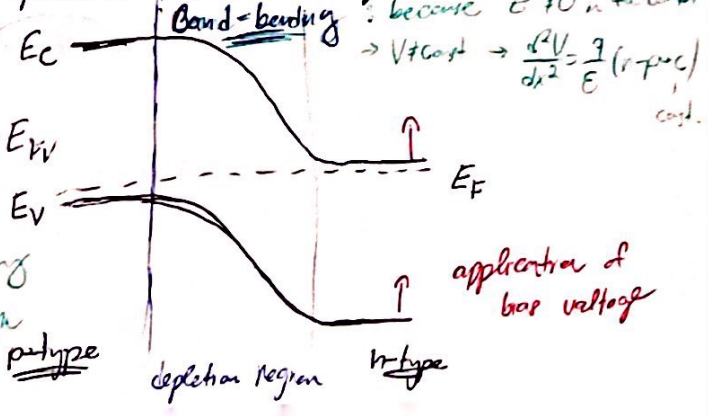 Band-bending : because E ≠ 0
→ V≠const → d²V/dx² = q/ε (n-p+c)
const.
E_C
E_F
E_V
application of
bias voltage
p-type
depletion region
n-type